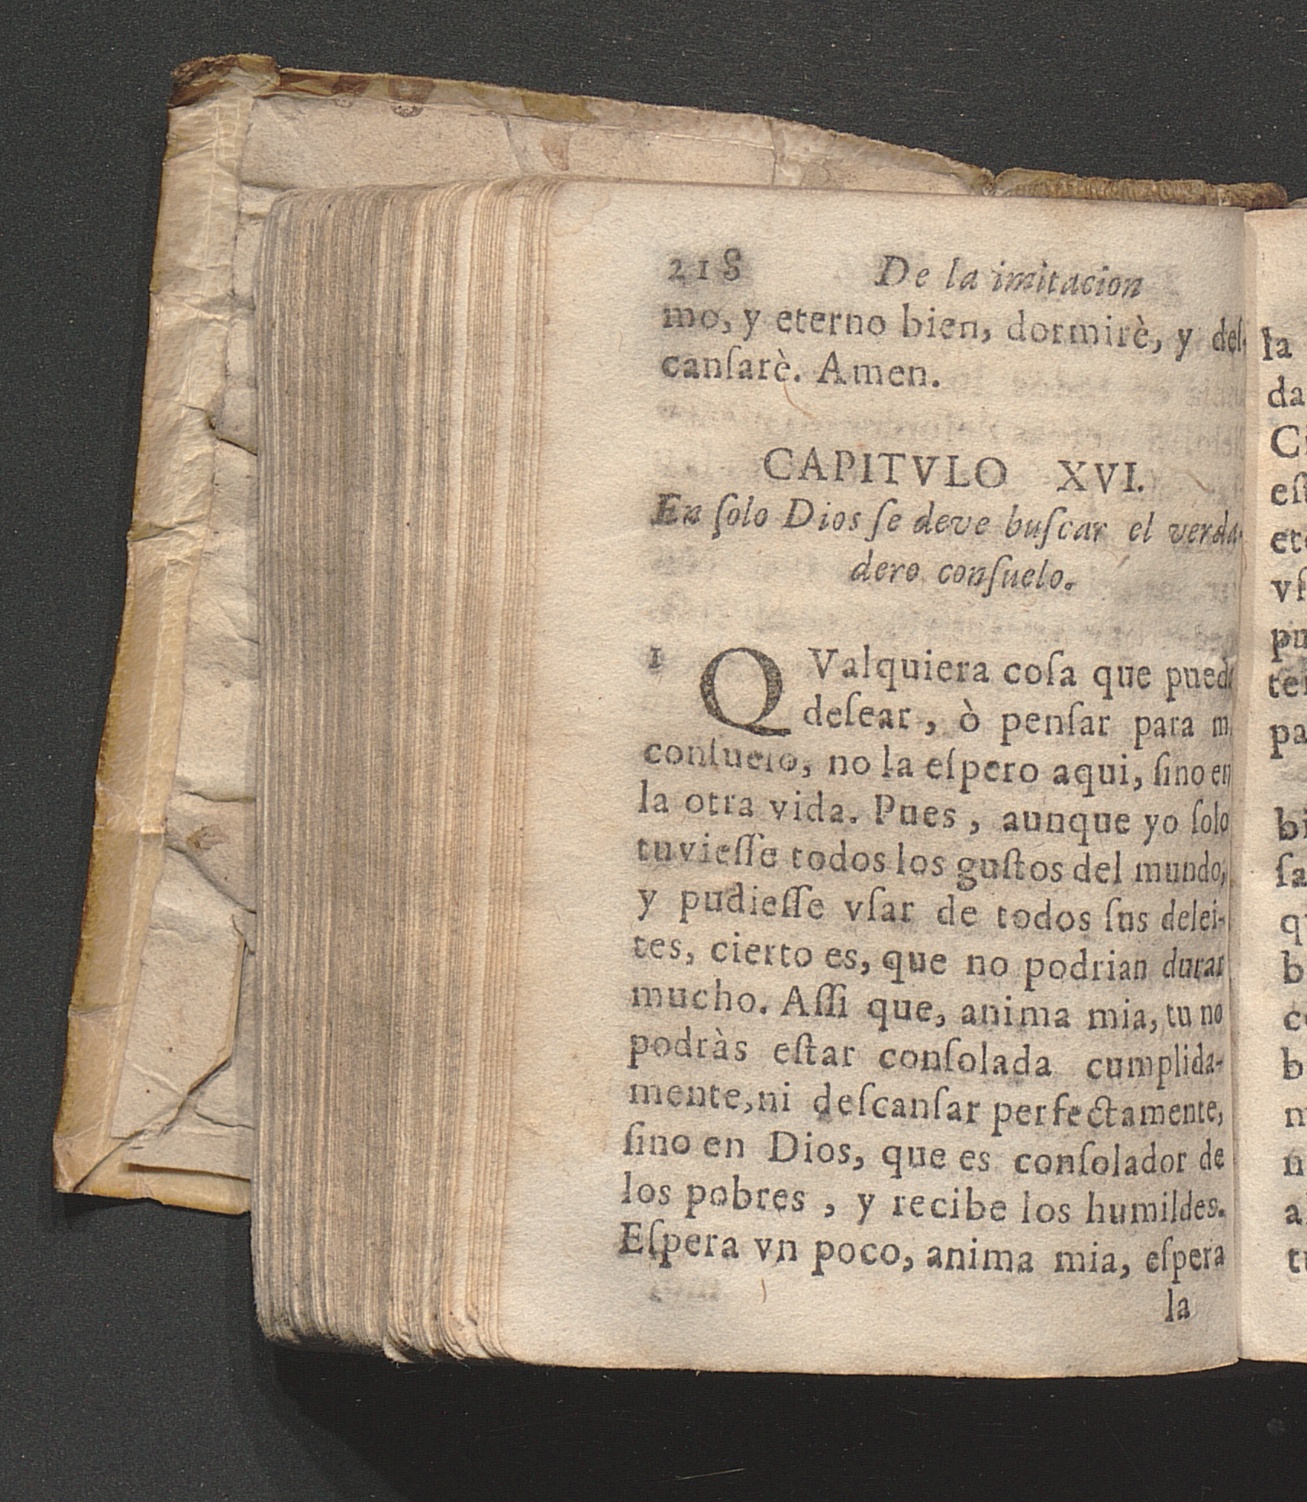 218 De la imitacion
mo, y eterno bien, dormirè, y deſ-
canſarè. Amen.
CAPITVLO XVI.
En ſolo Dios ſe deve buſcar el verda-
dero conſuelo.
1 QValquiera coſa que puedo
deſear, ò penſar para mi
conſuelo, no la eſpero aqui, ſino en
la otra vida. Pues, aunque yo ſolo
tuvieſſe todos los guſtos del mundo,
y pudieſſe vſar de todos ſus delei-
tes, cierto es, que no podrian durar
mucho. Aſſi que, anima mia, tu no
podràs eſtar conſolada cumplida-
mente, ni deſcanſar perfectamente,
ſino en Dios, que es conſolador de
los pobres, y recibe los humildes.
Eſpera vn poco, anima mia, eſpera
la
la
da
eſt
vſ
pu
pa
bi
ſa
b
b
a